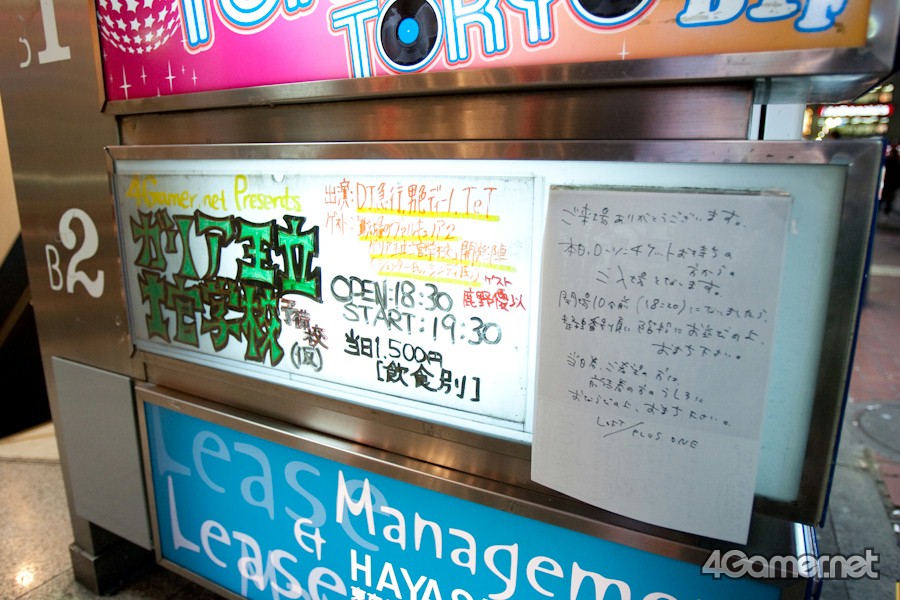 TOKYO
B1
4Gamer.net Presents
ガリア王立
士官学校
予備
校
(仮)
出演:DJ急行,
ゲスト:戦場のヴァルキュリア2
ゲスト
鹿野優以
OPEN:18:30
START:19:30
当日1,500円
[飲食別]
ご来場ありがとうございます。
本日、ローソンチケットお持ちの
方からの
ご入場となります。
開場10分前(18:20)になりましたら、
整理番号順に階段にお並びの上、
お待ち下さい。
当日券、ご希望の方は、
前売券の方のうしろに
お並びの上、お待ち下さい。
LOFT/PLUS ONE
B2
Lease
Lease
&
Manageme
HAYAS
4Gamer.net